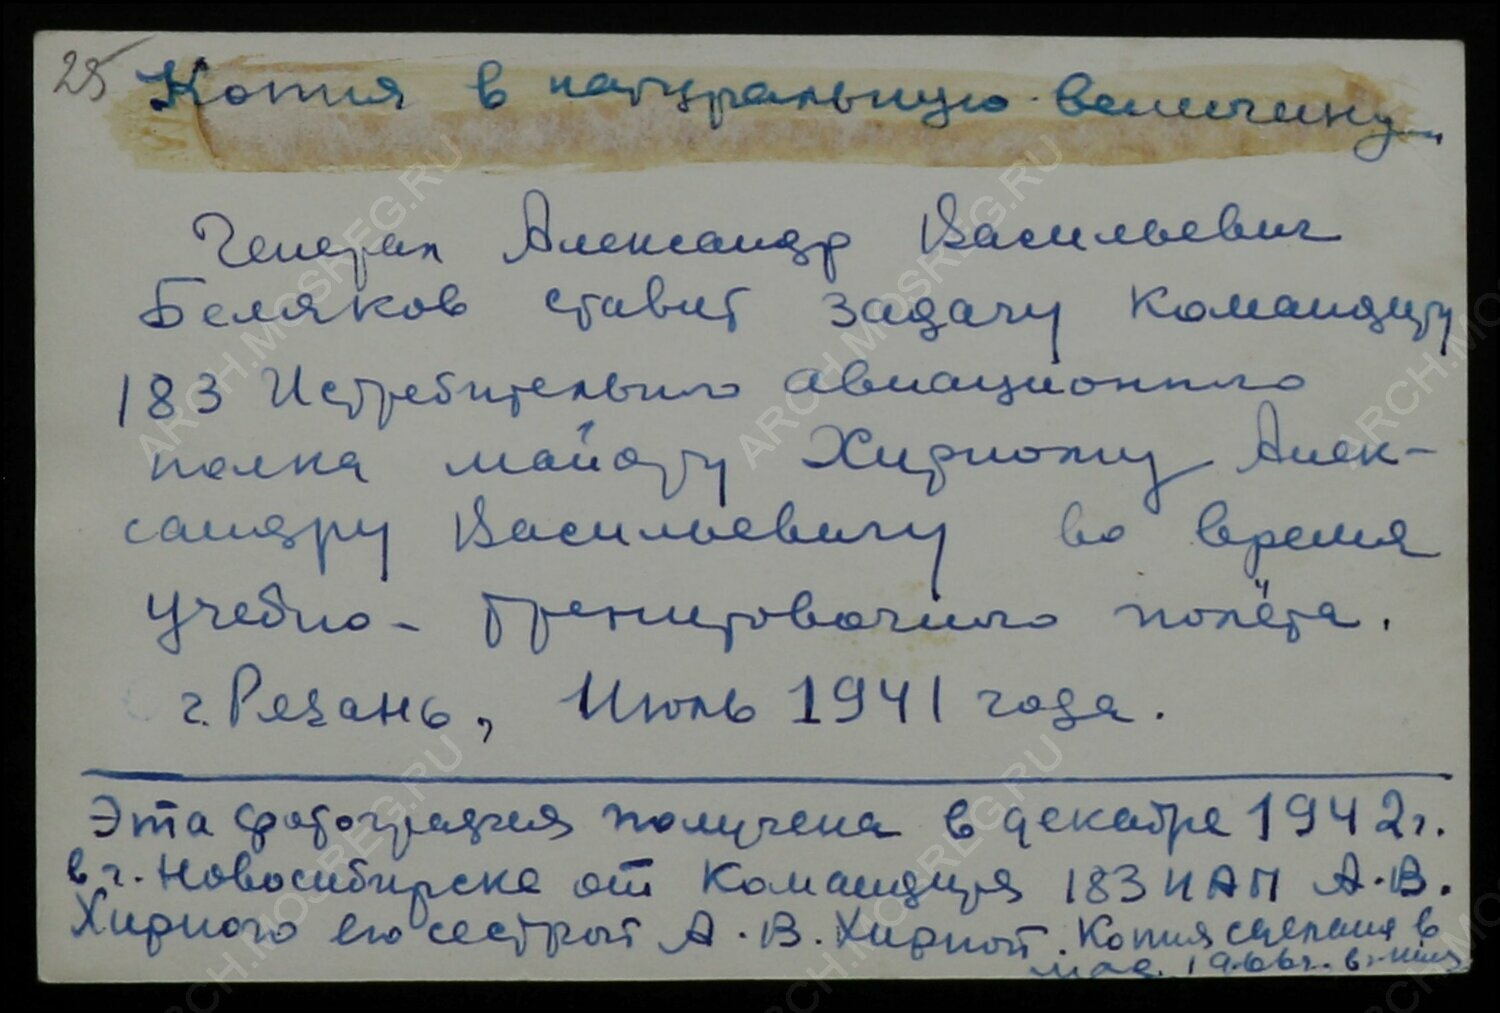 25
Копия в натуральную величину.
Генерал Александр Васильевич
Беляков ставит задачу командиру
183 Истребительного авиационного
полка майору Хирному Алек-
сандру Васильевичу во время
учебно-тренировочного полёта.
г. Рязань, Июль 1941 года.
Эта фотография получена в декабре 1942 г.
в г. Новосибирске от командира 183 ИАП А.В.
Хирного его сестрой А.В. Хирной. Копия сделана в
мае 1966 г. в г.
ARCH.MOSREG.RU
ARCH.MOSREG.RU
ARCH.MOSREG.RU
ARCH.MOSREG.RU
ARCH.MOSREG.RU